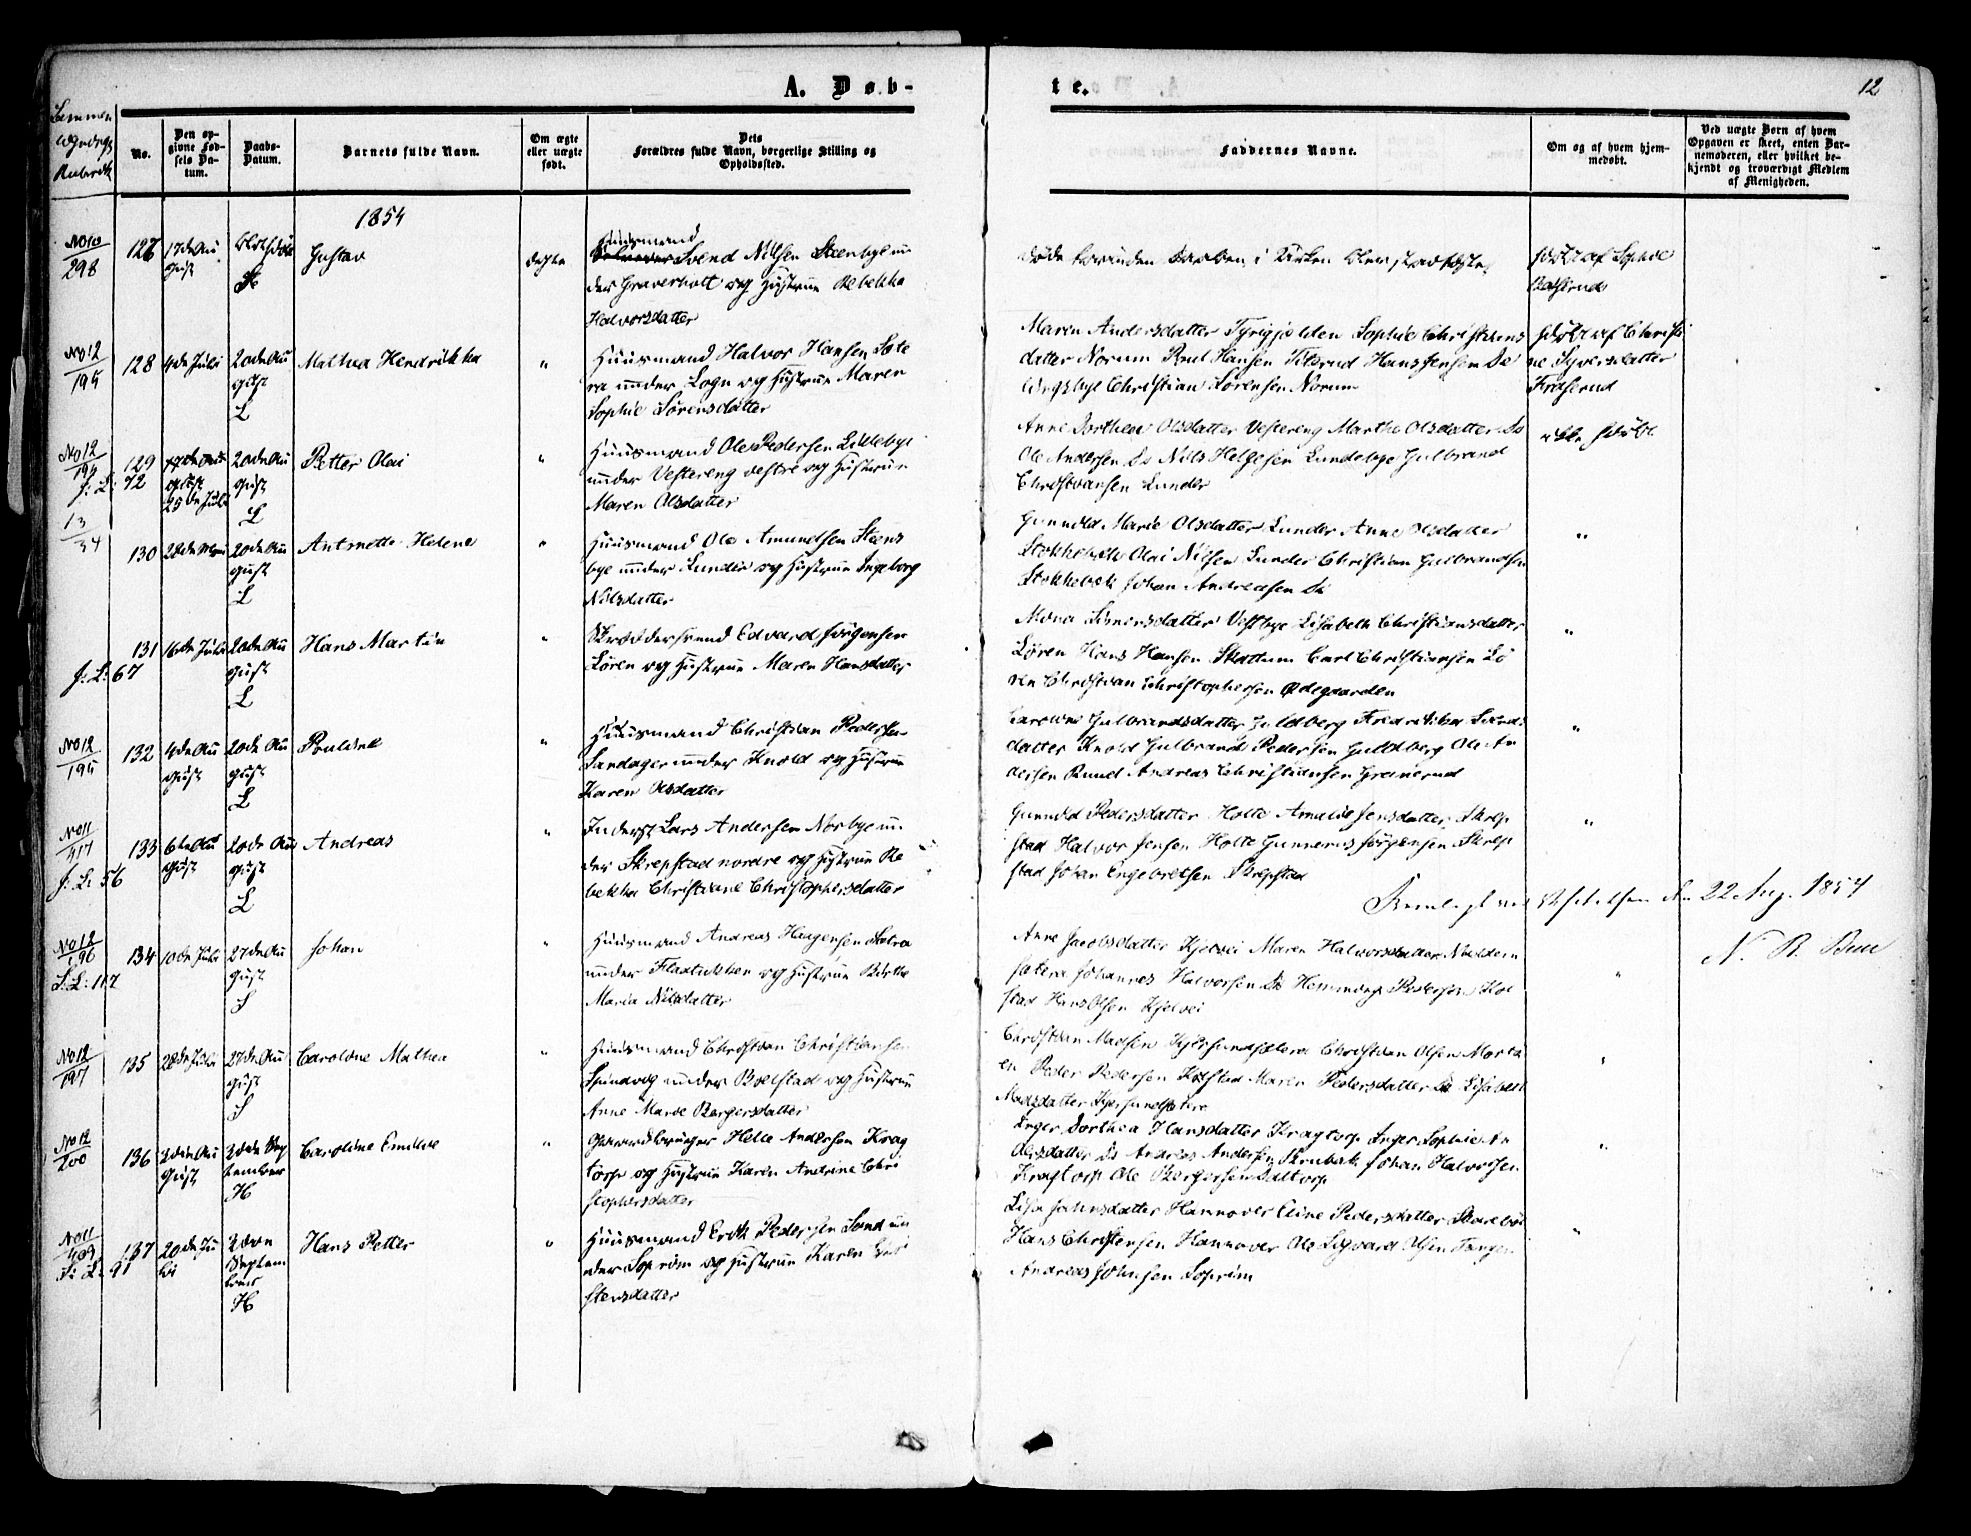 A. Døb-
te.
12
No.
Den op-
givne Fød-
sels Da-
tum.
Daabs-
Datum.
Barnets fulde Navn.
Om ægte
eller uægte
født.
Dets
Forældres fulde Navn, borgerlige Stilling og
Opholdssted.
Faddernes Navne.
Om og af hvem hjem-
medøbt.
Ved uægte Børn af hvem
Opgaven er skeet, enten Bar-
nemoderen, eller hvilket be-
kjendt og troværdigt Medlem
af Menigheden.
1854
No 10
298
127
17de Au
gust
Gustav
ægte
Huusmand
Svend Nilsen Steenbye un
der Graverholt og Hustrue Rebekka
Halvorsdatter
døbt af Sophie
No 12
195
128
4de Juli
20de Au
gust
L
Mathea Hendrikka
"
Huusmand Halvor Hansen Sæte
ra under Logn og Hustrue Maren
Sophie Sørensdatter
Maren Andersdatter Sophie Christians
datter Norum Poul Hansen Hans Jensen
Christian Sørensen Norum
døbt af Christi
ne Syversdatter
No 12
129
J: L: 72
25de Juli
20de Au
gust
L
Petter Olai
"
Huusmand Ole Pedersen Lillebye
under Vestereng vestre og Hustrue
Maren Olsdatter
Anne Dorthea Olsdatter Vestereng Marthe Olsdatter Do
Ole Andersen Do Nils Helgesen Lundebye Gulbrand
Christiansen Lunder
ikke døbt
13
34
130
28de Mai
20de Au
gust
L
Antonette Helene
"
Huusmand Ole Amundsen Steens
bye under Lunder og Hustrue Ingeborg
Nilsdatter
Gunild Marie Olsdatter Lunder Anne Olsdatter
Stokkebæk Olai Nilsen Lunder Christian Gulbrandsen
Stokkebæk Johan Andreasen Do
"
131
J: L: 67
16de Juli
20de Au
gust
L
Hans Martin
"
Skræddersvend Edvard Jørgensen
Løren og Hustrue Maren Hansdatter
Mona Simensdatter Vestbye Lisabeth Christiansdatter
Løren Hans Hansen Skattum Carl Christiansen Lø
ren Christian Christophersen Ødegaarden
"
No 12
195
132
4de Au
gust
20de Au
gust
L
Pouline
"
Huusmand Christian Pedersen
Sandager under Knold og Hustrue
Karen Olsdatter
Caroline Gulbrandsdatter Guldberg Fredrikka Svends
datter Knold Gulbrand Pedersen Guldberg Ole An
dersen Ruud Andreas Christiansen Granerud
"
No 11
417
133
J: L: 56
6te Au
gust
20de Au
gust
L
Andreas
"
Inderst Lars Andersen Norbye un
der Skrepstad nordre og Hustrue Re
bekka Christiane Christophersdatter
Gunild Pedersdatter Holte Amalie Jensdatter Skrep
stad Halvor Jensen Holte Gunnerus Jørgensen Skrep
stad Johan Engebretsen Skrepstad
"
Fremlagt ved Visitatsen den 22 Aug. 1854
N. R. Bull
No 12
196
134
J: L: 117
10de Juli
27de Au
gust
S
Johan
"
Huusmand Andreas Haagensen Sætra
under Fladstokken og Hustrue Birthe
Maria Nilsdatter
Anne Jacobsdatter Kjolvei Maren Halvorsdatter
sætera Johannes Halvorsen Do Hemming Pedersen Kol
stad Hans Olsen Kjolvei
"
No 12
197
135
28de Juli
27de Au
gust
S
Caroline Mathea
"
Huusmand Christian Christiansen
under Bølstad og Hustrue
Anne Marie Børgersdatter
Christian Madsen Christian Olsen
en Peder Pedersen Kolstad Maren Pedersdatter Do Lisabeth
Madsdatter
"
No 12
200
136
2den Au
gust
3die Sep
tember
H
Caroline Emilie
"
Gaardbruger Helle Andersen Krag
torp og Hustrue Karen Andrine Chri
stophersdatter
Inger Dorthea Hansdatter Kragtorp Inger Sophie An
dersdatter Do Andreas Andersen Johan Halvorsen
Kragtorp Ole Børgersen Daltorp
"
No 11
409
137
J: L: 91
20de Ju
li
3die
Septem
ber
H
Hans Petter
"
Huusmand Erik Pedersen Sand un
der Soprim og Hustrue Karen Chri
stensdatter
Lisa Johnsdatter Hannover Eline Pedersdatter
Hans Christensen Hannover Ole Sigvard Olsen Tangen
Andreas Johnsen Soprim
"